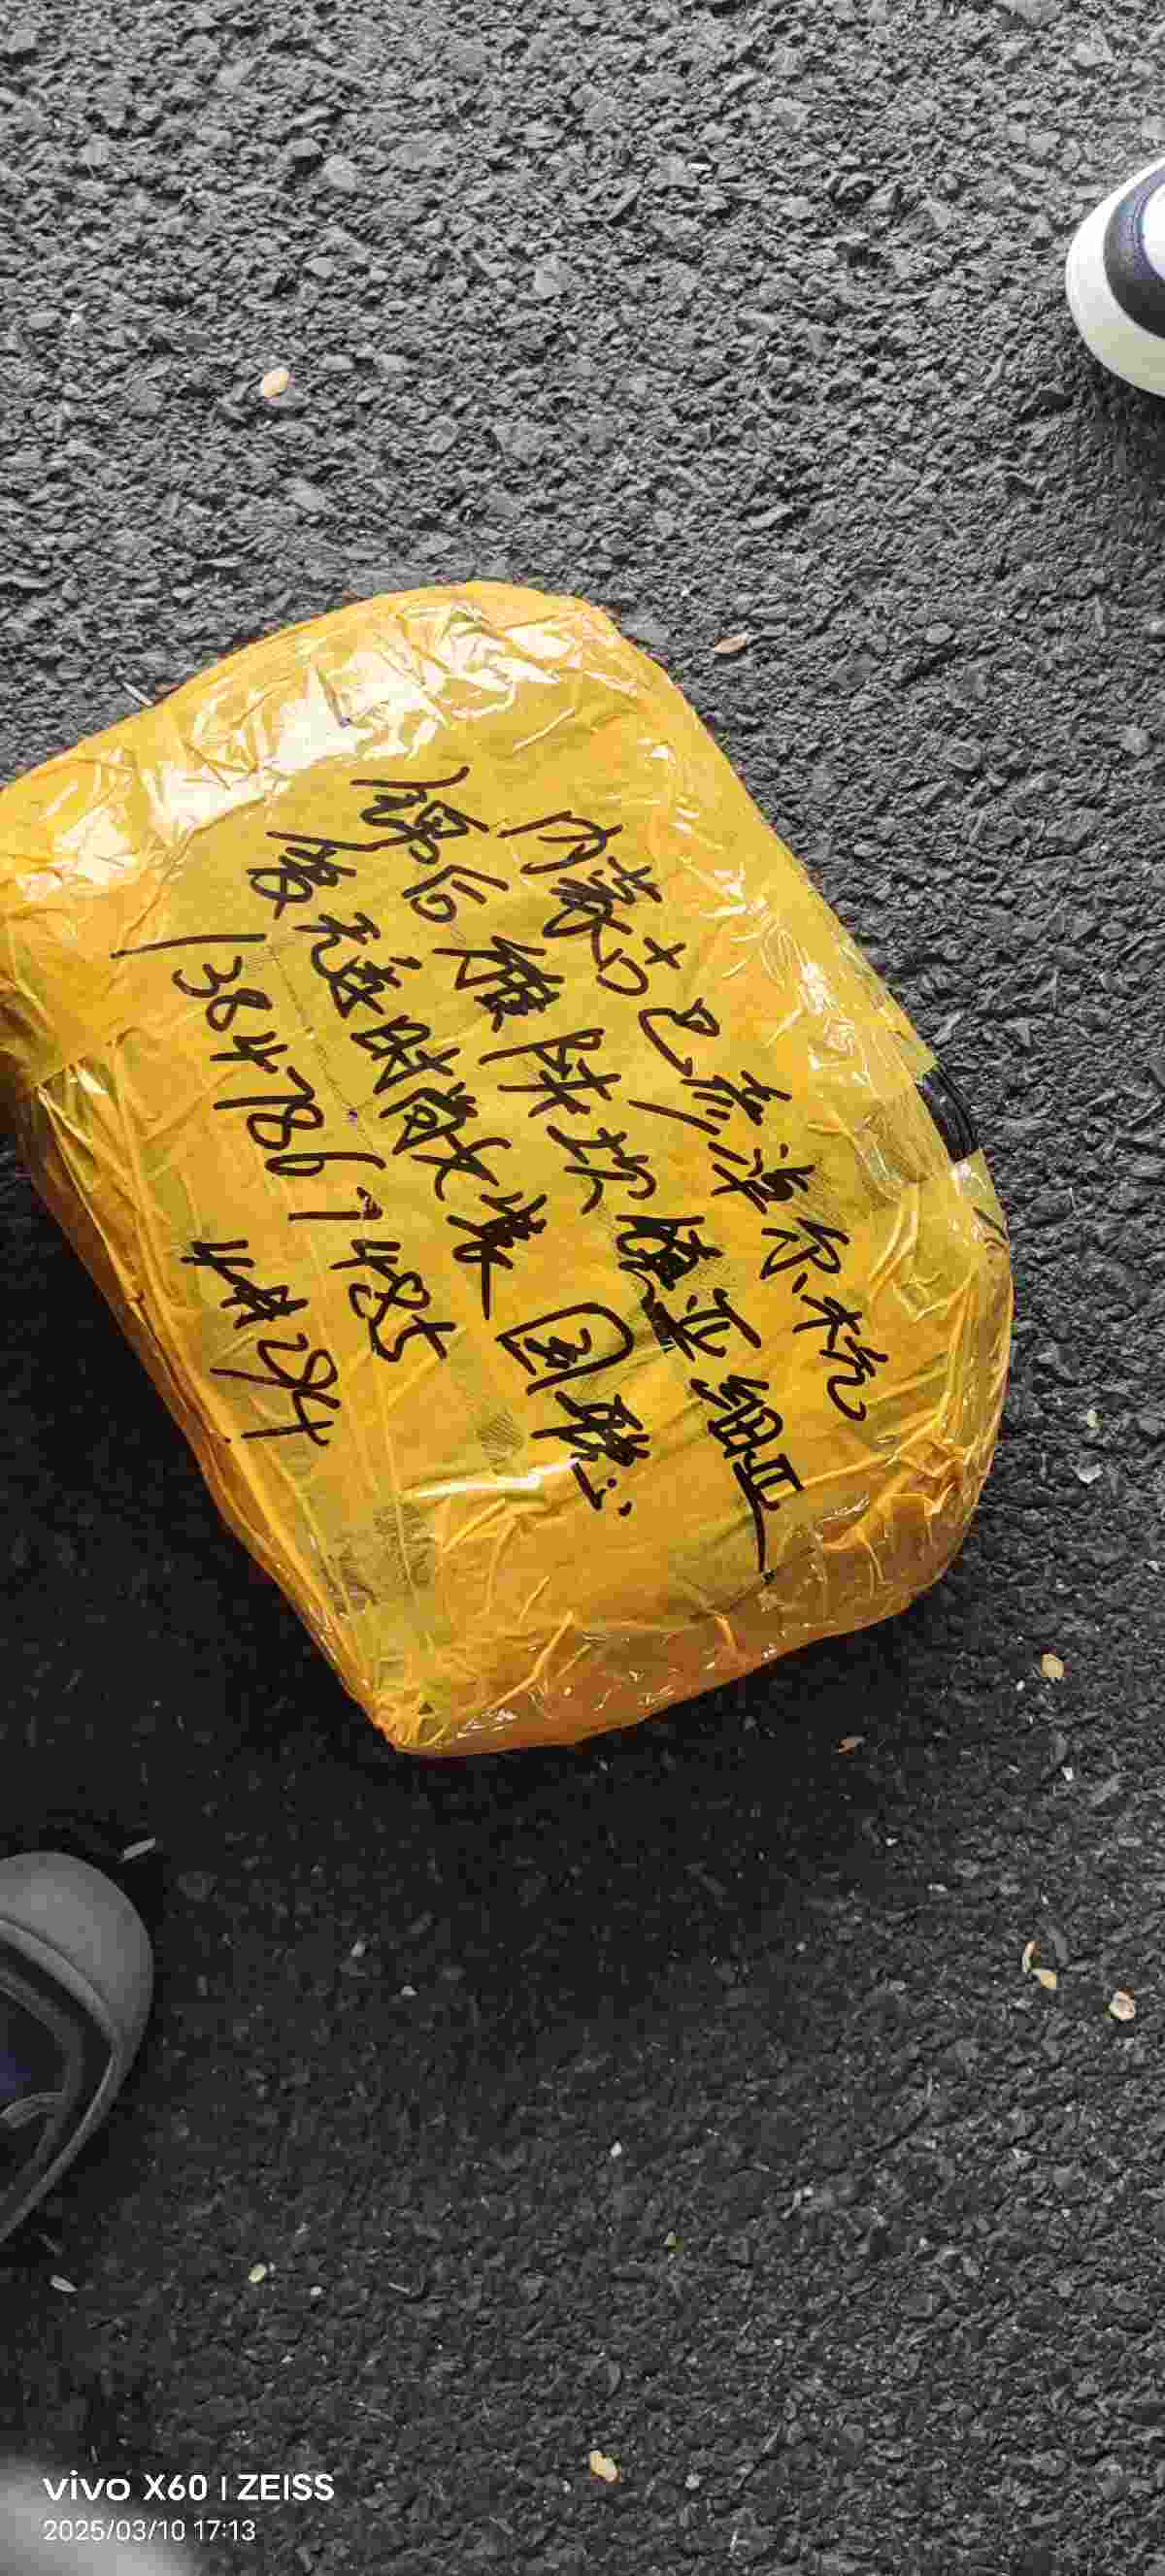 内蒙古巴彦淖尔杭
锦后旗陕坝镇亚细亚
无违时尚女装 国聪
13847861485
4件284
vivo X60 | ZEISS
2025/03/10 17:13